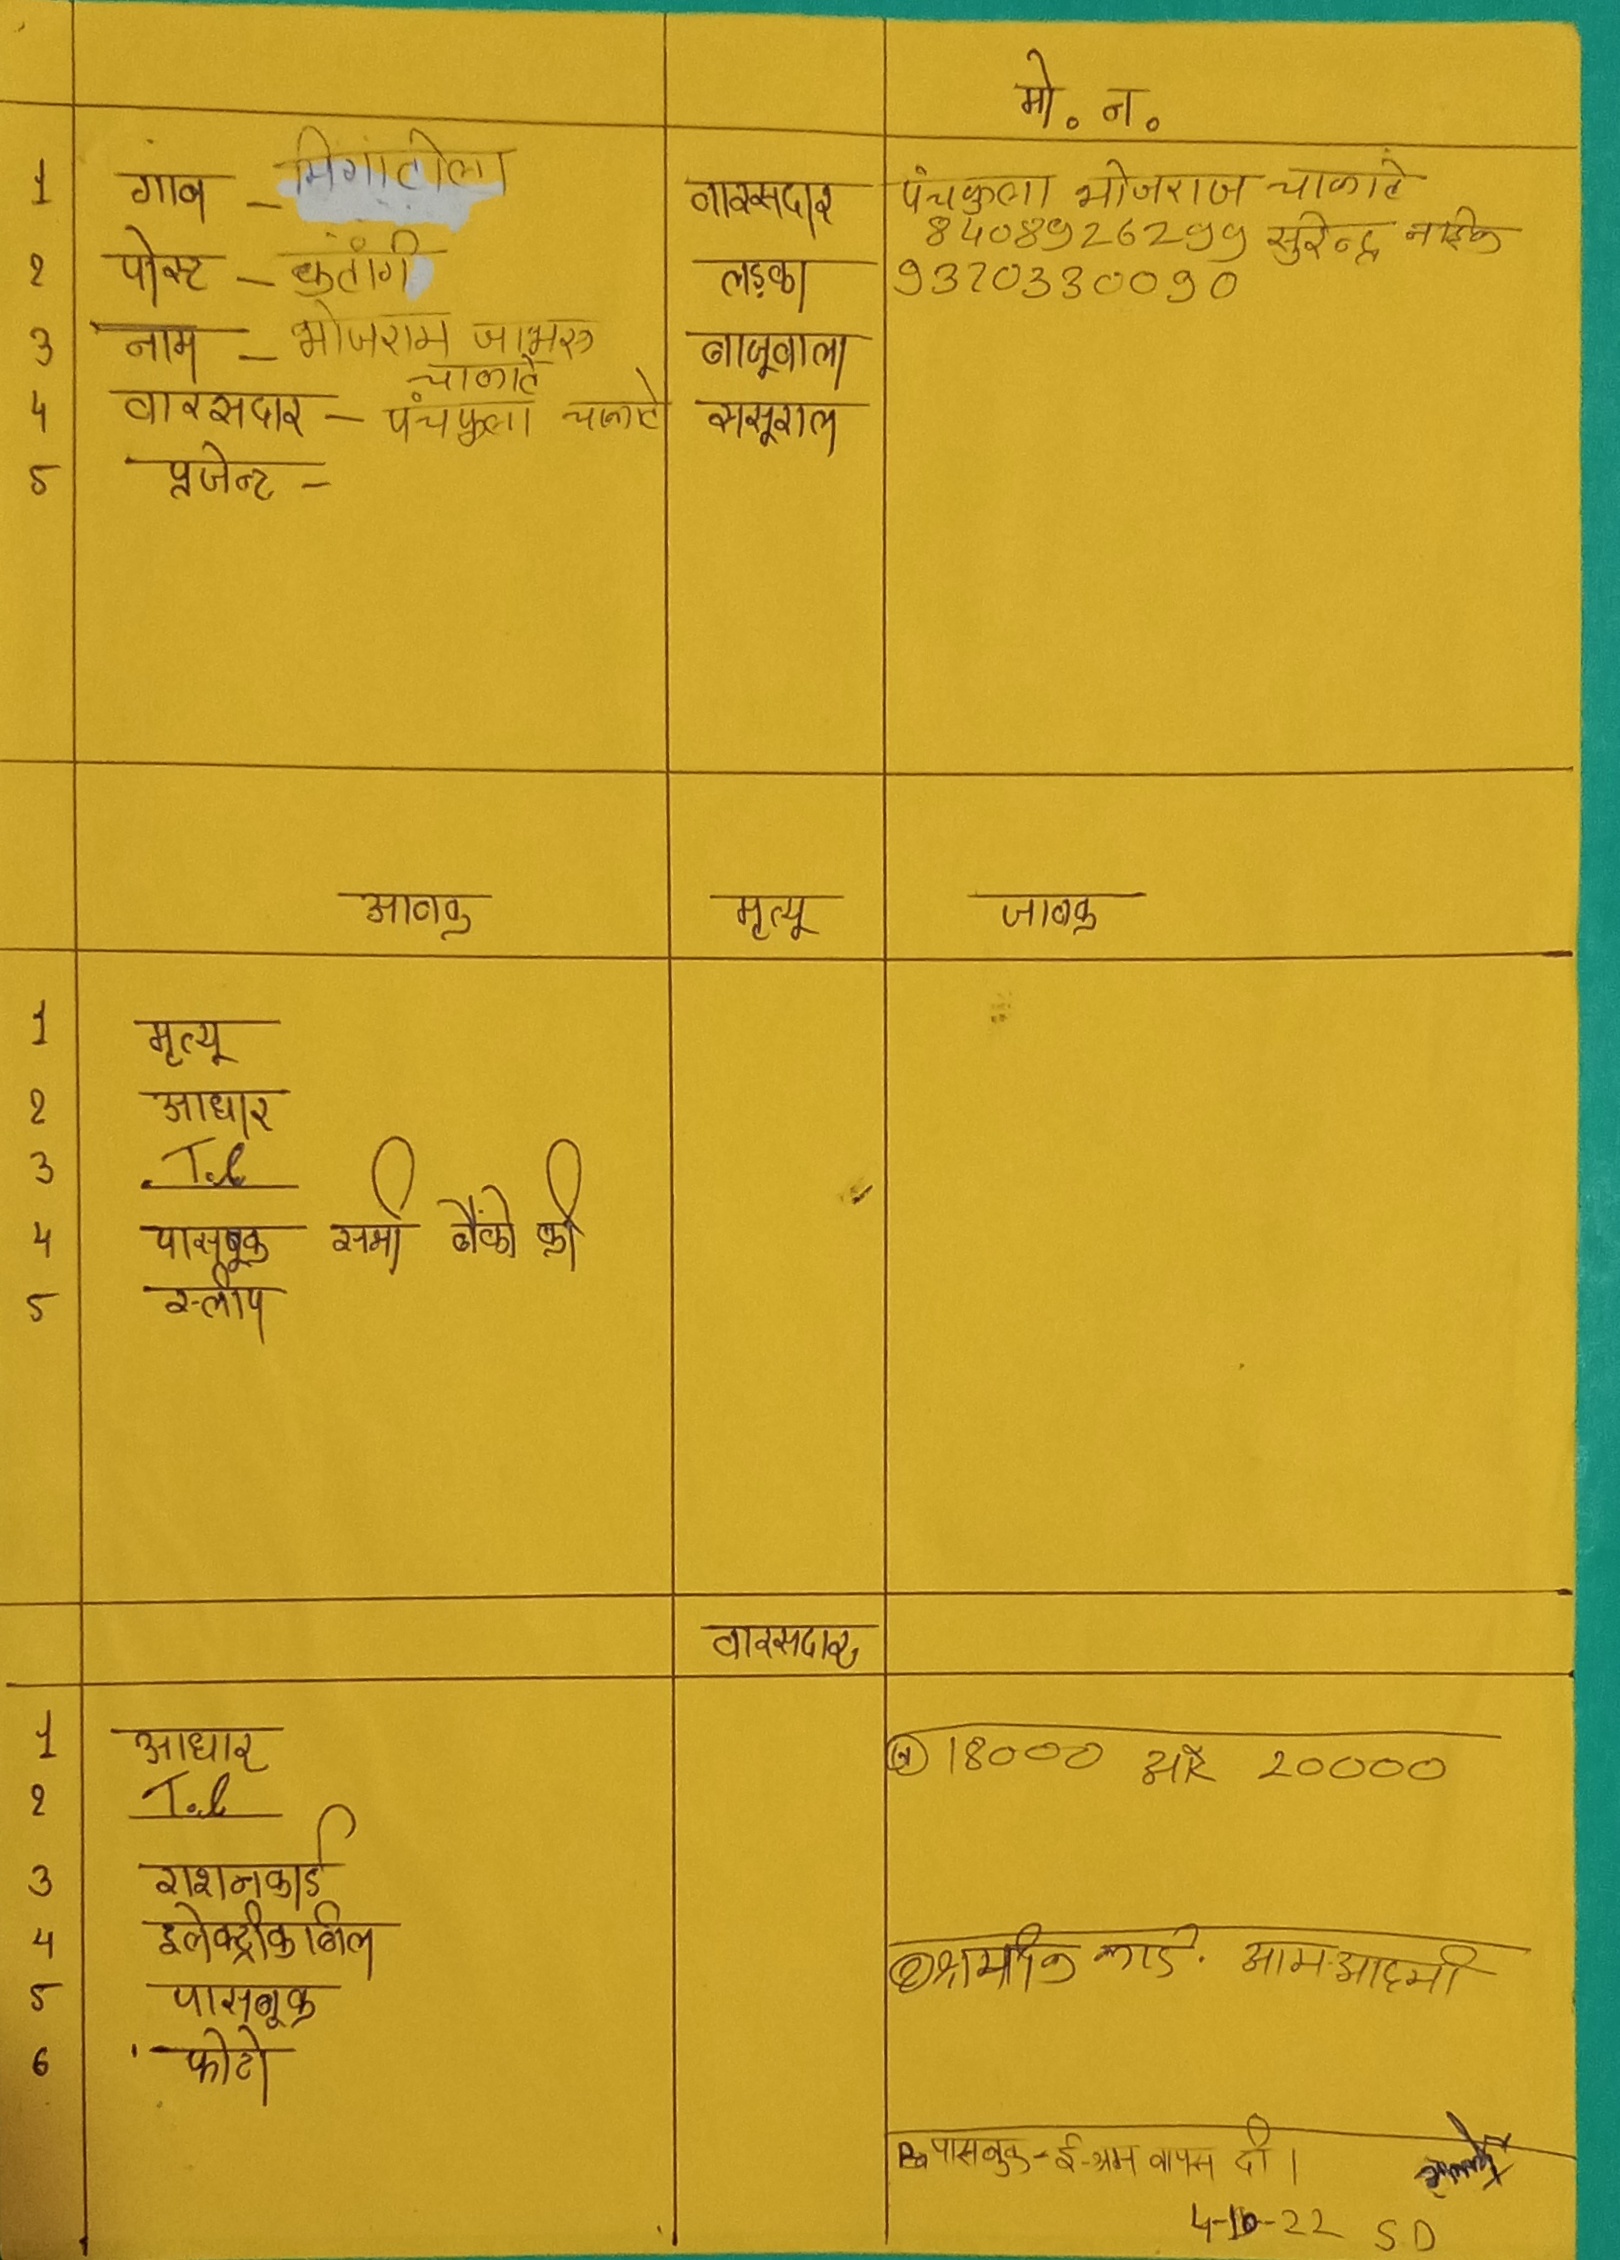 मो. न.
1 गाव - वारसदार पंचफुला भोजराज चाकाटे
8408926299 सुरेन्द्र नाईक
2 पोस्ट - कुतांगी लड़का 9370330090
3 नाम - भोजराम बाजूवाला
चाकाटे
4 वारसदार - पंचफुला चाकाटे ससूराल
5 एजेन्ट -
आवक मृत्यू जावक
1 मृत्यू
2 आधार
3 T.C
4 पासबूक सभी बैंको की
5 स्लीप
वारसदार
1 आधार
① 18000 और 20000
2 T.C
3 राशनकार्ड
4 इलेक्ट्रीक बिल
② श्रमीक कार्ड. आम आदमी
5 पासबूक
6 फोटो
पासबुक - ई-श्रम वापस दी।
4-10-22 SD